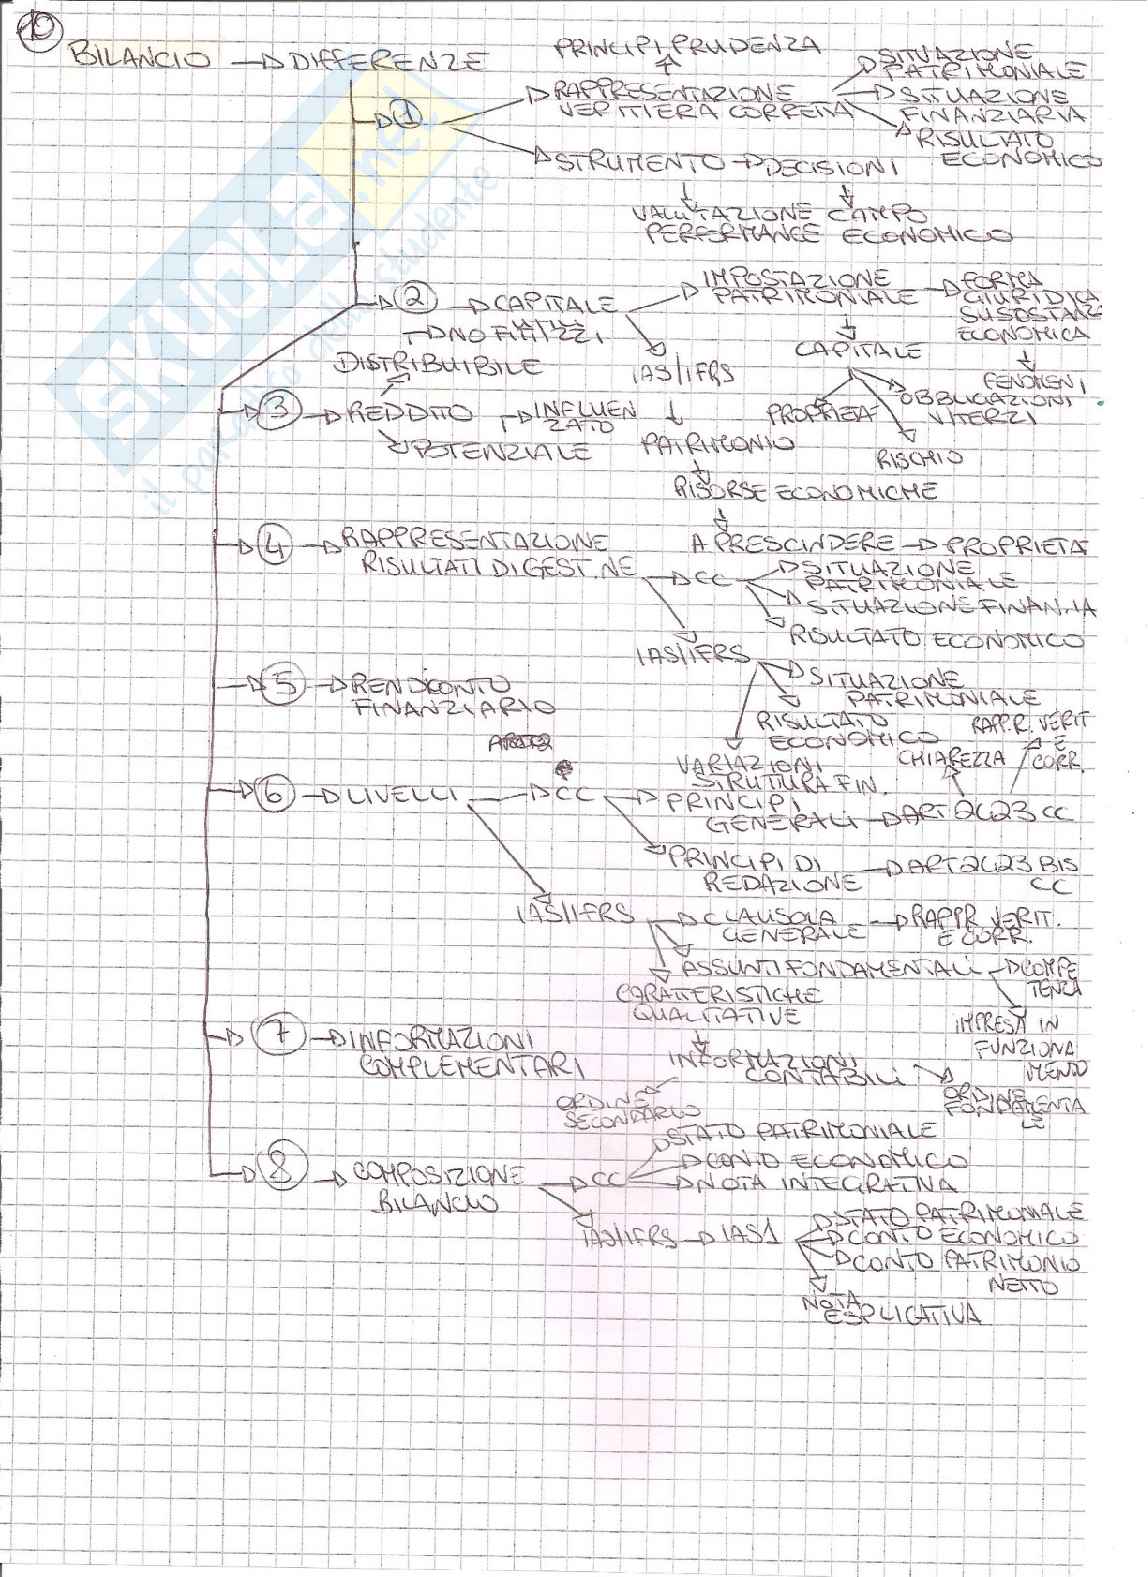 10
BILANCIO → DIFFERENZE
PRINCIPI PRUDENZA
① RAPPRESENTAZIONE
VERITIERA CORRETTA
SITUAZIONE
PATRIMONIALE
SITUAZIONE
FINANZIARIA
RISULTATO
ECONOMICO
STRUMENTO → DECISIONI
VALUTAZIONE
PERFORMANCE
CAMPO
ECONOMICO
② → CAPITALE
IMPOSTAZIONE
PATRIMONIALE
FORMA
GIURIDICA
ECONOMICA
FENOMENI
CAPITALE
PROPRIETÀ
OBBLIGAZIONI
V/TERZI
RISCHIO
IAS/IFRS
PATRIMONIO
RISORSE ECONOMICHE
A PRESCINDERE → PROPRIETÀ
NO FITTIZI
DISTRIBUIBILE
③ → REDDITO
INFLUEN
ZATO
POTENZIALE
④ → RAPPRESENTAZIONE
RISULTATI DI GEST.NE
CC
SITUAZIONE
PATRIMONIALE
SITUAZIONE FINAN.IA
RISULTATO ECONOMICO
IAS/IFRS
SITUAZIONE
PATRIMONIALE
RISULTATO
ECONOMICO
VARIAZIONI
STRUTTURA FIN.
⑤ → RENDICONTO
FINANZIARIO
⑥ → LIVELLI → CC
PRINCIPI
GENERALI → ART 2423 CC
CHIAREZZA
RAPPR. VERIT
E
CORR.
PRINCIPI DI
REDAZIONE
ART 2423 BIS
CC
IAS/IFRS
CLAUSOLA
GENERALE
RAPPR. VERIT.
E CORR.
ASSUNTI FONDAMENTALI
COMPE
TENZA
IMPRESA IN
FUNZIONA
MENTO
CARATTERISTICHE
QUALITATIVE
INFORMAZIONI
CONTABILI
ORDINE
SECONDARIO
ORDINE
FONDAMENTA
LE
⑦ → INFORMAZIONI
COMPLEMENTARI
⑧ → COMPOSIZIONE
BILANCIO
CC
STATO PATRIMONIALE
CONTO ECONOMICO
NOTA INTEGRATIVA
IAS/IFRS → IAS1
STATO PATRIMONIALE
CONTO ECONOMICO
CONTO PATRIMONIO
NETTO
NOTA
ESPLICATIVA
SKUOLA.net
il paradiso dello studente